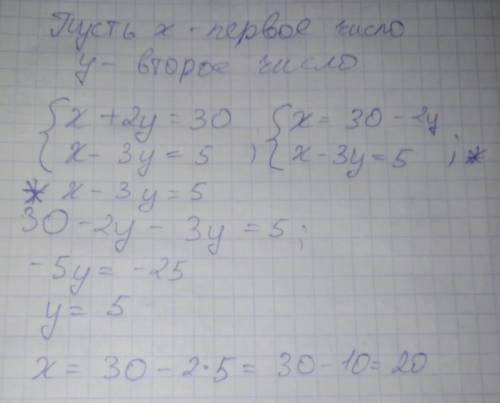 Пусть x - первое число
y - второе число
{ x + 2y = 30 { x = 30 - 2y
x - 3y = 5 , x - 3y = 5 ; *
* x - 3y = 5
30 - 2y - 3y = 5 ;
-5y = -25
y = 5
x = 30 - 2·5 = 30 - 10 = 20